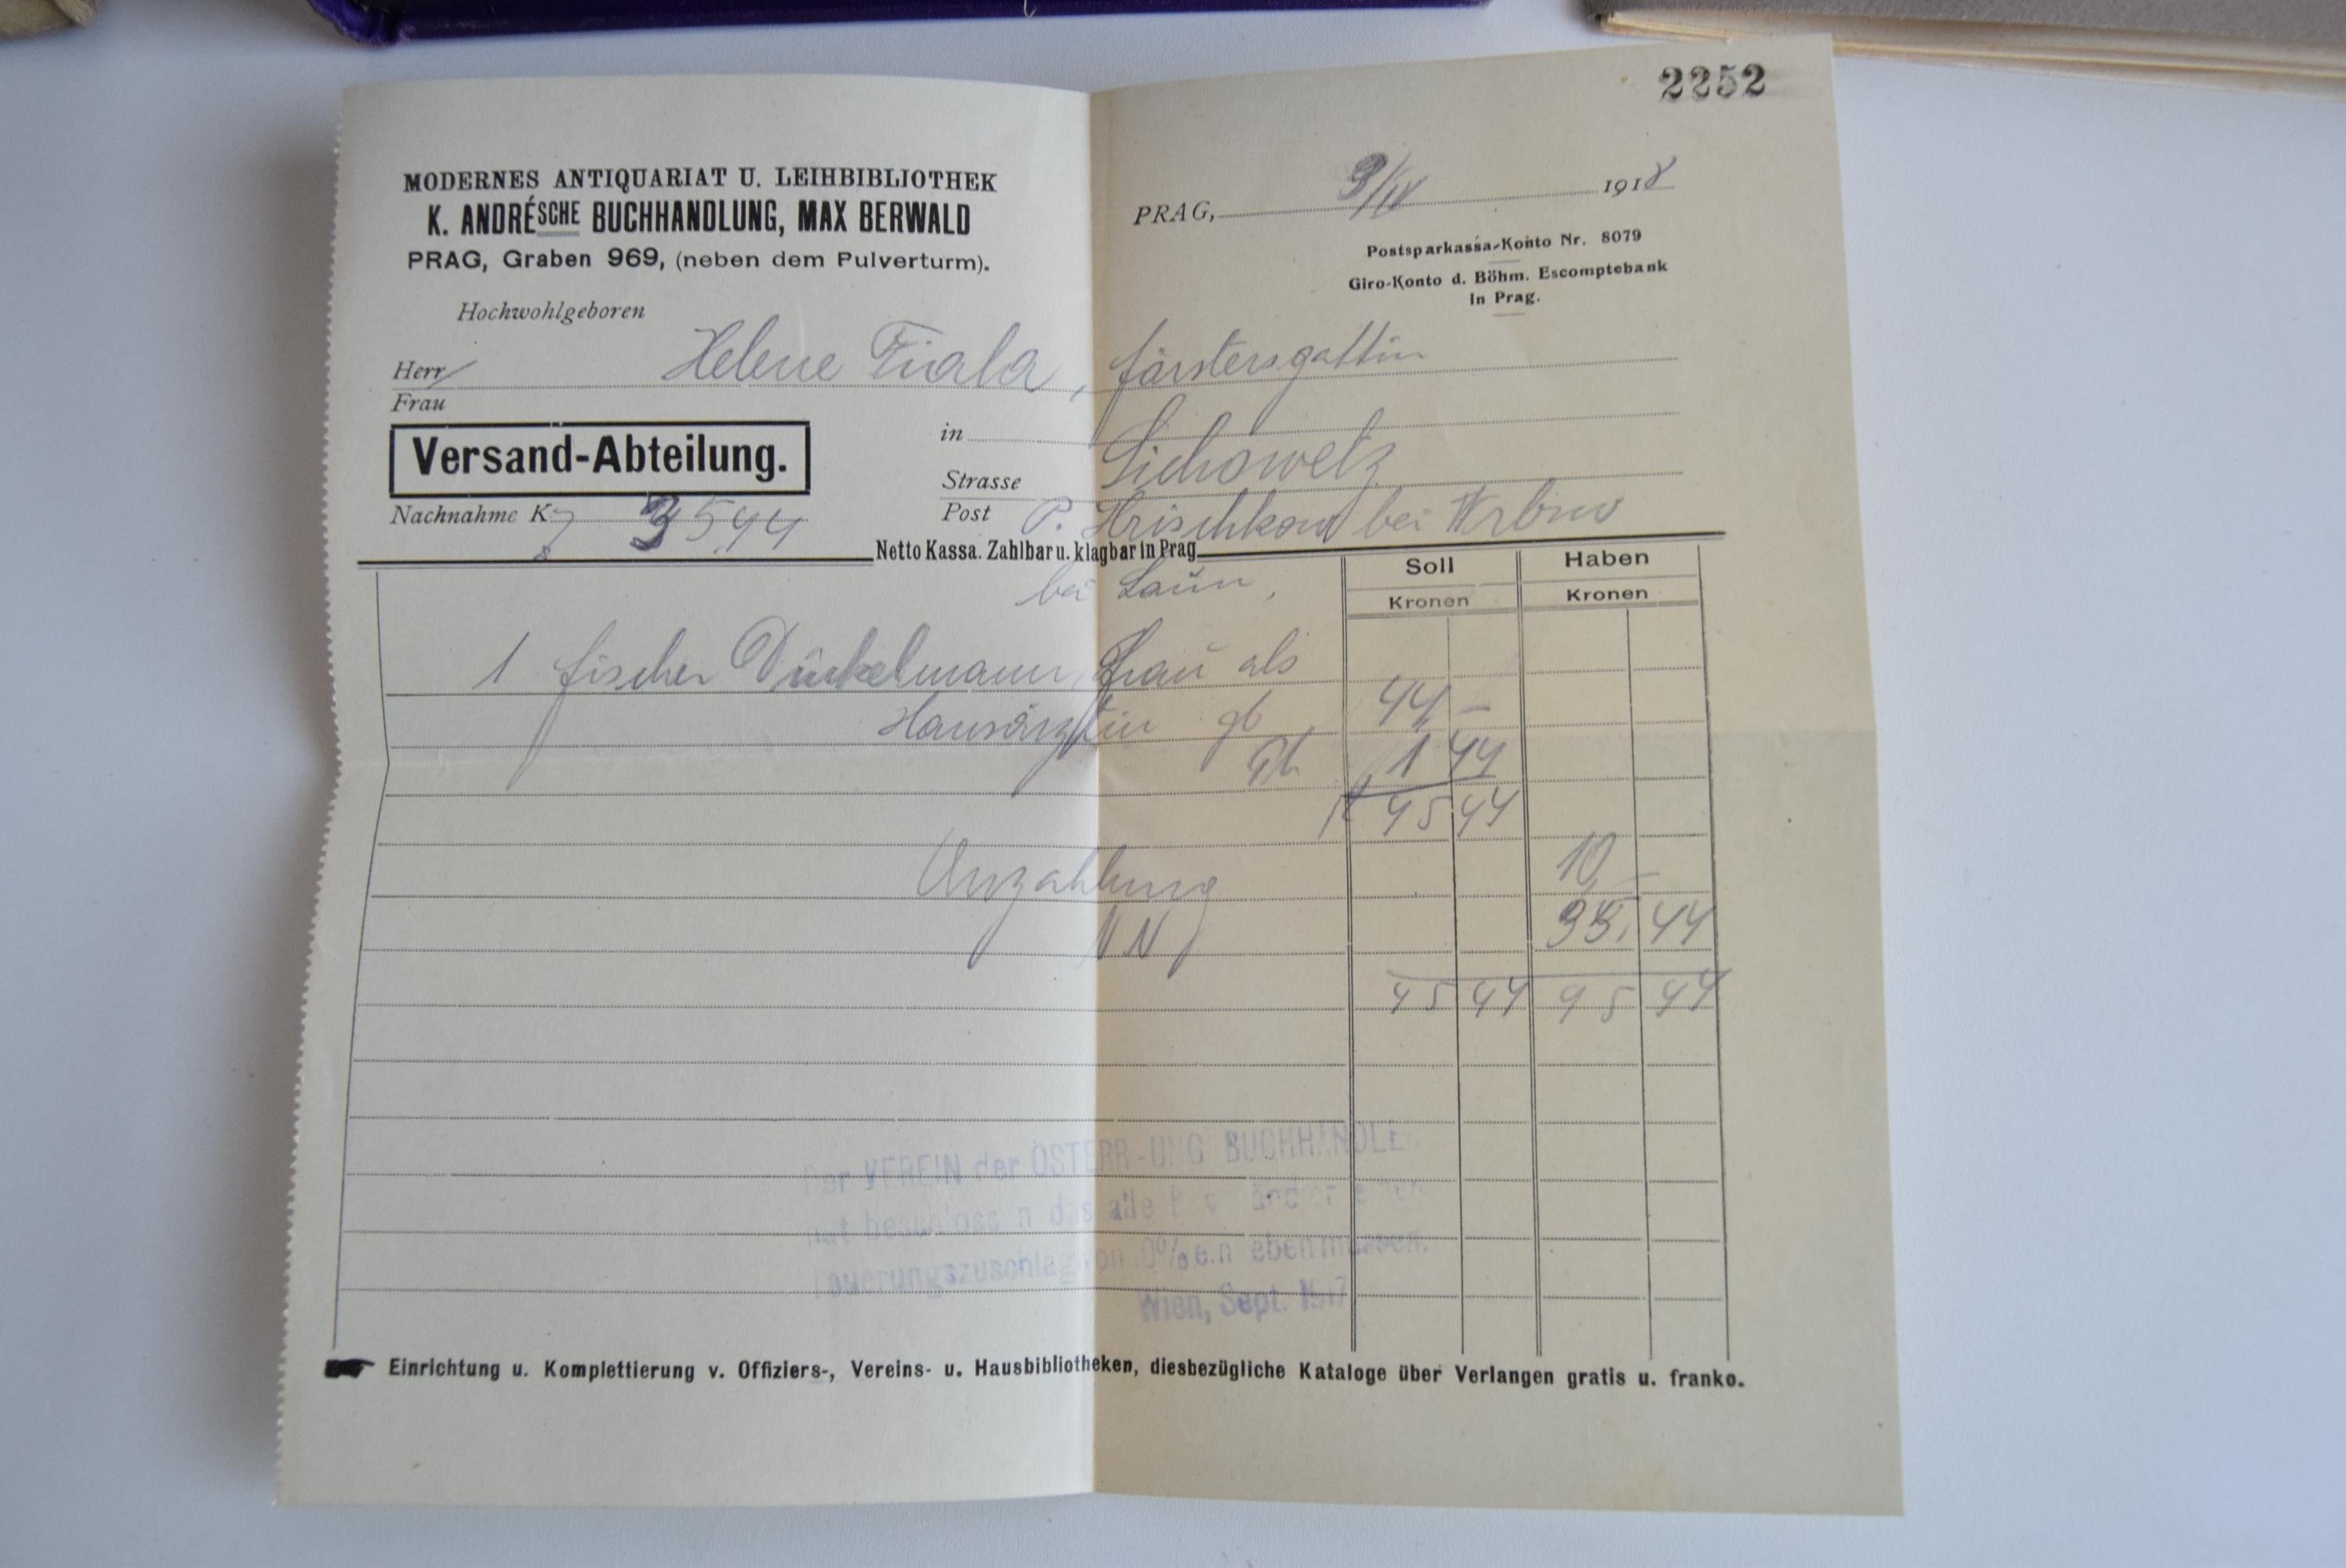 2252
MODERNES ANTIQUARIAT U. LEIHBIBLIOTHEK
K. ANDRÉSCHE BUCHHANDLUNG, MAX BERWALD
PRAG, Graben 969, (neben dem Pulverturm).
PRAG, 9/IV 1918
Postsparkassa-Konto Nr. 8079
Giro-Konto d. Böhm. Escomptebank
in Prag.
Hochwohlgeboren
Herr Helene Fiala, Förstersgattin
Frau
Versand-Abteilung.
in
Strasse Lichowetz
Nachnahme K 35,44
Post P. Hrischkow bei Wrbno
Netto Kassa. Zahlbar u. klagbar in Prag
bei Laun,
Soll Haben
Kronen Kronen
1 Fischer Dückelmann, Frau als
Hausärztin gb 44 –
1 44
K 45 44
Anzahlung 10 –
NN 35,44
45 44 45 44
Der VEREIN der ÖSTERR-UNG BUCHHÄNDLE
hat beschlossen das alle
Teuerungszuschlag von 0% eben müssen.
Wien, Sept. 1917
Einrichtung u. Komplettierung v. Offiziers-, Vereins- u. Hausbibliotheken, diesbezügliche Kataloge über Verlangen gratis u. franko.